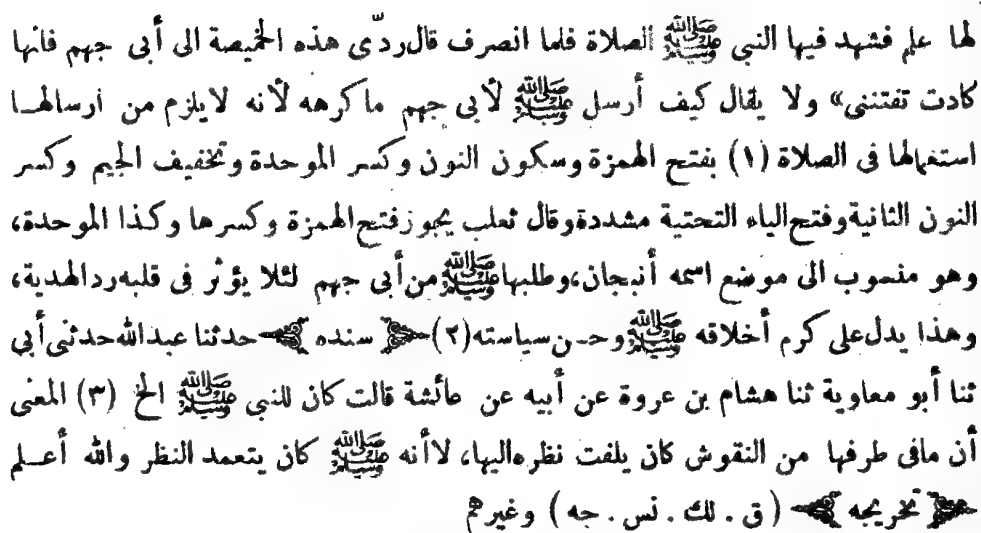 لها علم فشهد فيها النبي ﷺ الصلاة فلما انصرف قال ردّى هذه الخميصة الى أبى جهم فانها
كادت تفتننى» ولا يقال كيف أرسل ﷺ لأبى جهم ماكرهه لأنه لايلزم من ارسالهــا
استعمالها فى الصلاة (١) بفتح الهمزة وسكون النون وكسر الموحدة وتخفيف الجيم وكسر
النون الثانية وفتح الياء التحتية مشددة وقال ثعلب يجوز فتح الهمزة وكسرها وكذا الموحدة،
وهو منسوب الى موضع اسمه أنبجان، وطلبها ﷺ من أبى جهم لئلا يؤثر فى قلبه رد الهدية،
وهذا يدل على كرم أخلاقه ﷺ وحـن سياسته (٢) ﴿ سنده ﴾ حدثنا عبد الله حدثنى أبي
ثنا أبو معاوية ثنا هشام بن عروة عن أبيه عن عائشة قالت كان للنبي ﷺ الخ (٣) المعنى
أن مافى طرفها من النقوش كان يلفت نظره اليها، لاأنه ﷺ كان يتعمد النظر والله أعــلم
﴿ تخريجه ﴾ ( ق . لك . نس . جه ) وغيرهم